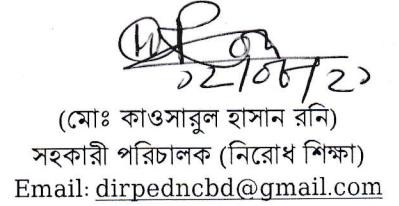 ১২/০৮/২১
(মোঃ কাওসারুল হাসান রনি)
সহকারী পরিচালক (নিরোধ শিক্ষা)
Email: dirpedncbd@gmail.com